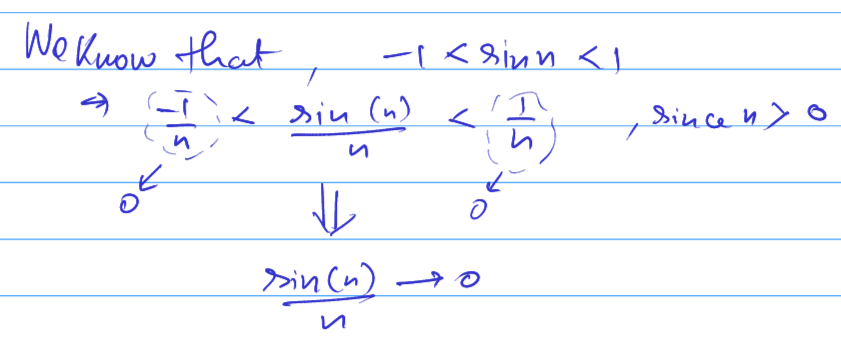 We Know that, -1 < sin n < 1
⇒ -1/n < sin(n)/n < 1/n, since n > 0
0 ⇓ 0
sin(n)/n → 0